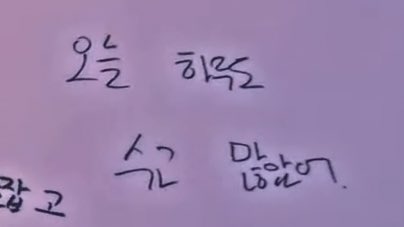 오늘 하루도
수고 많았어.